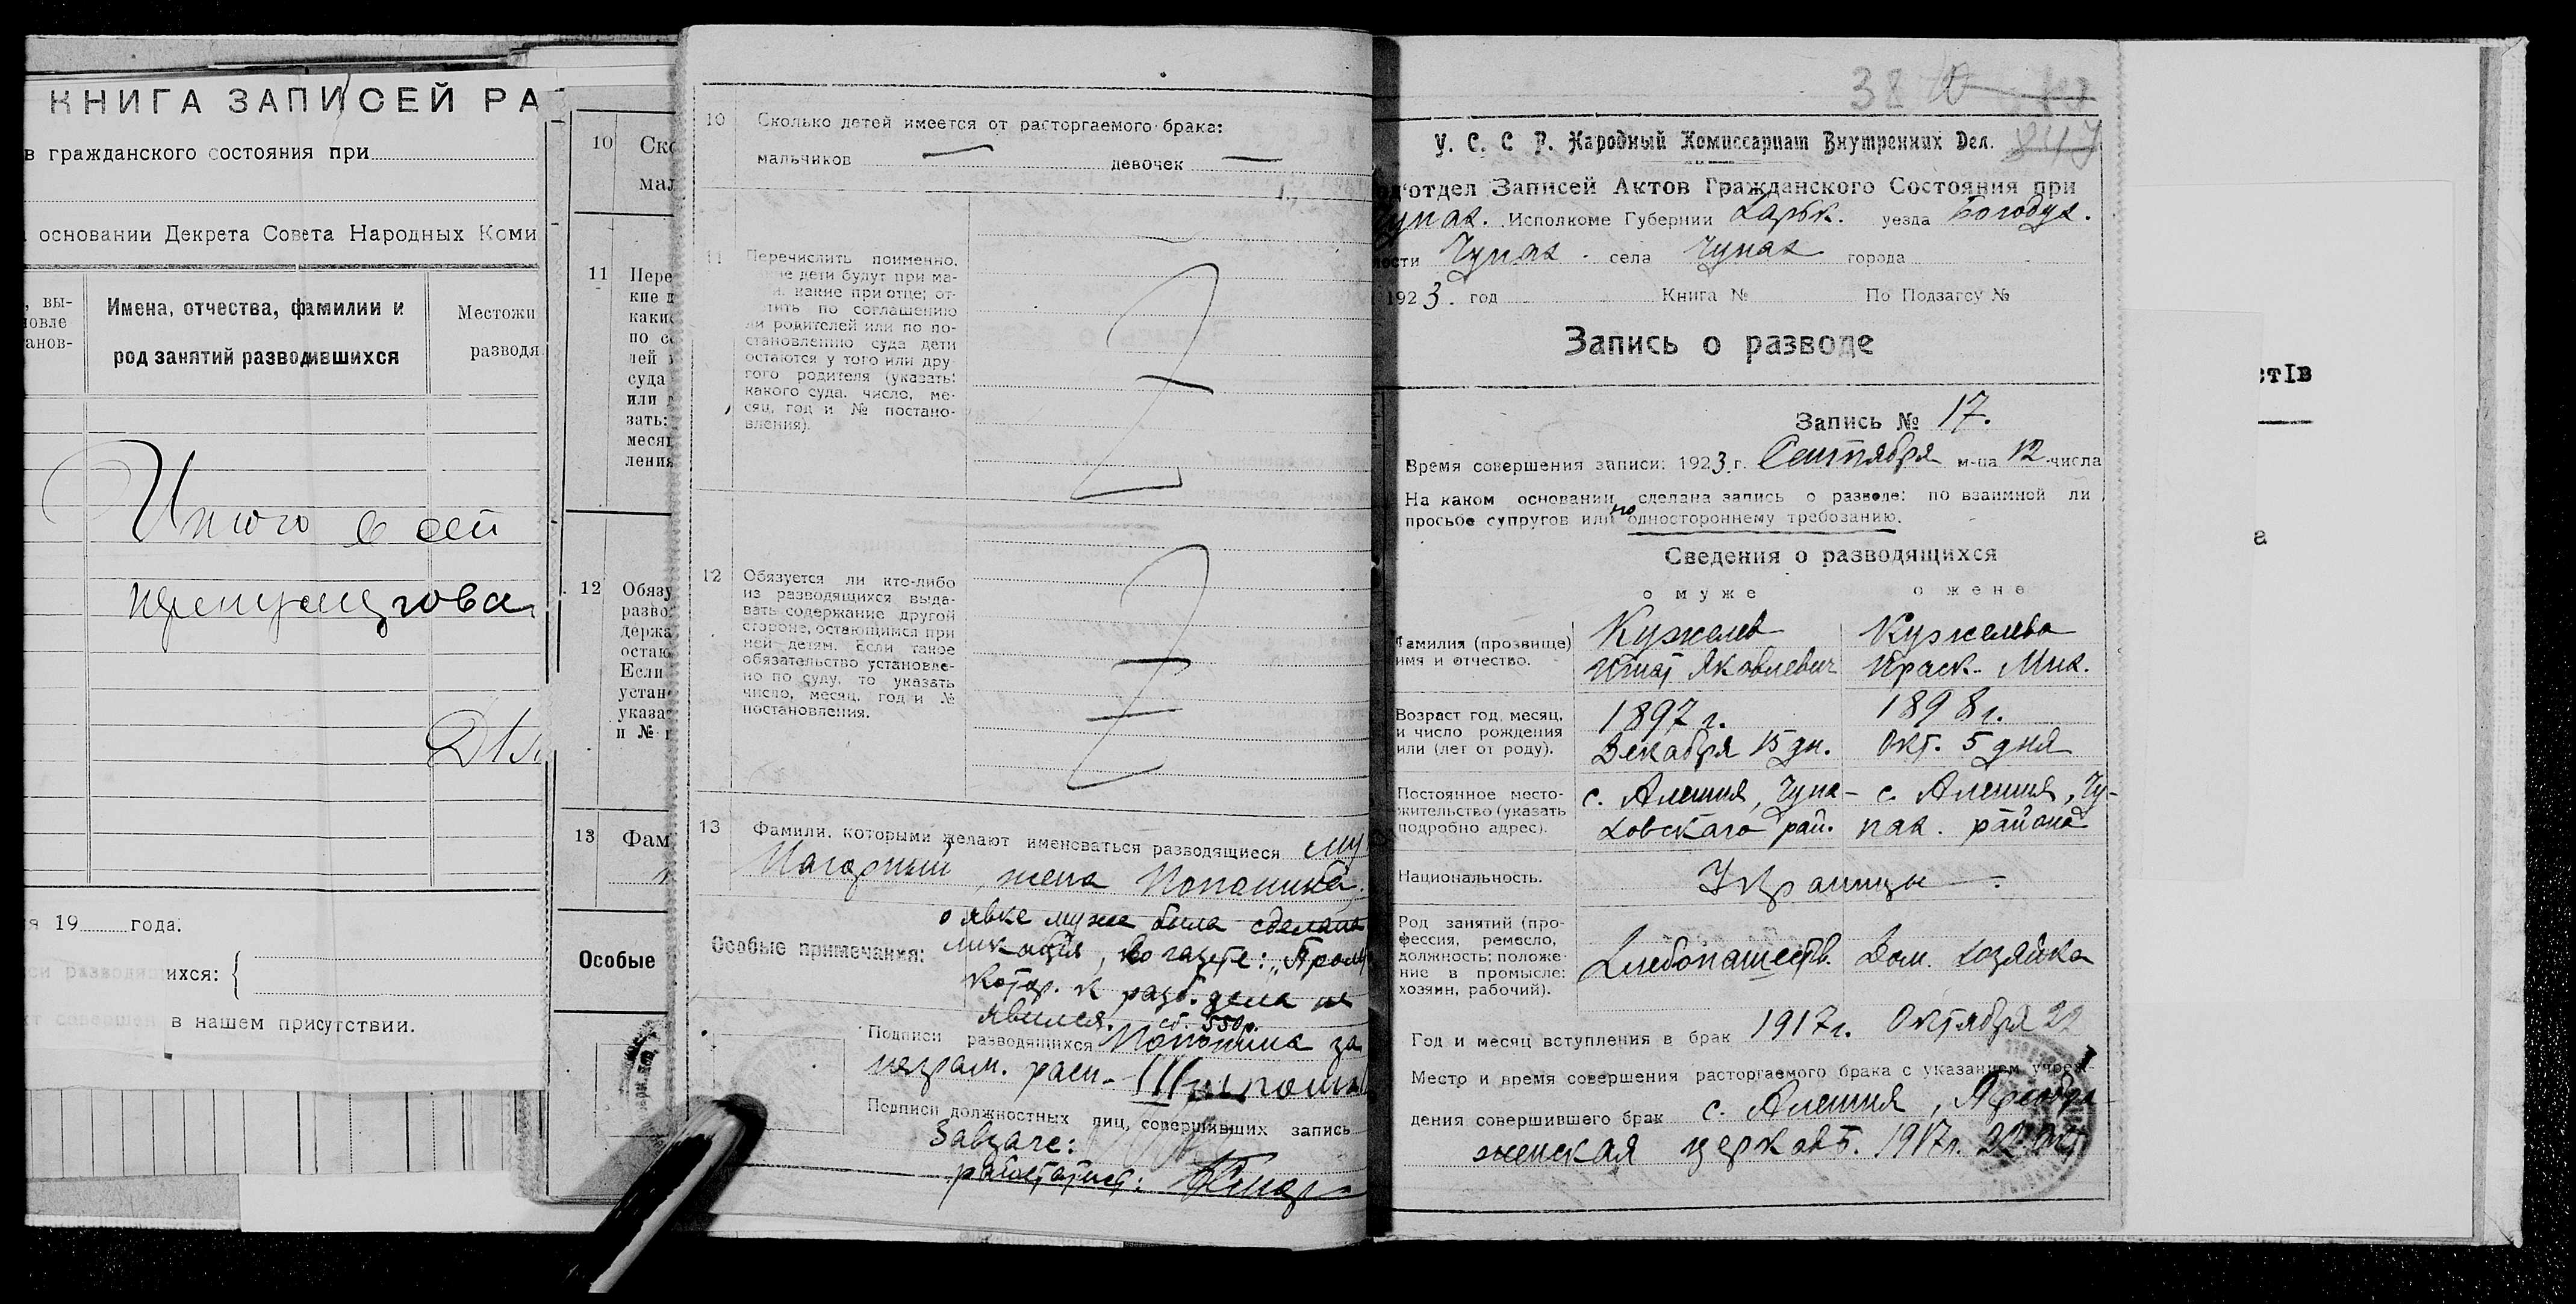 КНИГА ЗАПИСЕЙ РА
в гражданского состояния при
основании Декрета Совета Народных Коми
, вы-
новле
анов-
Имена, отчества, фамилии и
род занятий разводившихся
Местожи
разводя
Итого в сей
19 года.
ихся:
в нашем присутствии.
10 Ско
мал
11 Пере
кие д
каки
по со
лей
суда
или
зать:
месяц
ления
12 Обязу
разво
держа
остаю
Если
устан
указа
и №
13 Фам
Особые
10 Сколько детей имеется от расторгаемого брака:
мальчиков — девочек —
11 Перечислить поименно,
ие дети будут при ма-
и, какие при отце; от-
тить по соглашению
ли родителей или по по-
становлению суда дети
остаются у того или дру
гого родителя (указать:
какого суда, число, ме-
сяц, год и № постано-
вления).
12 Обязуется ли кто-либо
из разводящихся выда-
вать содержание другой
стороне, остающимся при
ней детям. Если такое
обязательство установле-
но по суду, то указать
число, месяц, год и №
постановления.
13 Фамили, которыми желают именоваться разводящиеся му
Нагорный, жена
Особые примечания:
о явке мужа была сделана
ликация, в газете: „Прол
котор. к разб. дела не
явился. сб. 550р.
Подписи разводящихся за
неграм. расп.
Подписи должностных лиц, совершивших запись
Завзаге:
38
847
У. С. С. Р. Народный Комиссариат Внутренних Дел.
од'отдел Записей Актов Гражданского Состояния при
Чупах. Исполкоме Губернии Харьк. уезда Богодух.
лости Чупах. села Чупах города
1923. год Книга № По Подзагсу №
Запись о разводе
Запись № 17.
Время совершения записи: 1923.г. Сентября м-ца 12 числа
На каком основании сделана запись о разводе: по взаимной ли
просьбе супругов или по одностороннему требованию.
Сведения о разводящихся
о муже о жене
Фамилия (прозвище)
имя и отчество.
Кужелев
Игнат Яковлевич
Кужелева
Параск. Мих.
Возраст год, месяц,
и число рождения
или (лет от роду).
1897 г.
Декабря 15 дн.
1898 г.
Окт. 5 дня
Постоянное место-
жительство (указать
подробно адрес).
с. Алешня, Чупа-
ховскаго рай.
с. Алешня, Чу-
пах. района
Национальность.
Украинцы
Род занятий (про-
фессия, ремесло,
должность; положе-
ние в промысле:
хозяин, рабочий).
Хлебопашеств.
Дом. хозяйка
Год и месяц вступления в брак 1917г. Октября 22
Место и время совершения расторгаемого брака с указанием учреж-
дения совершившего брак с. Алешня, Преобра-
женская церковь. 1917г. 22 окт
:тIв
а